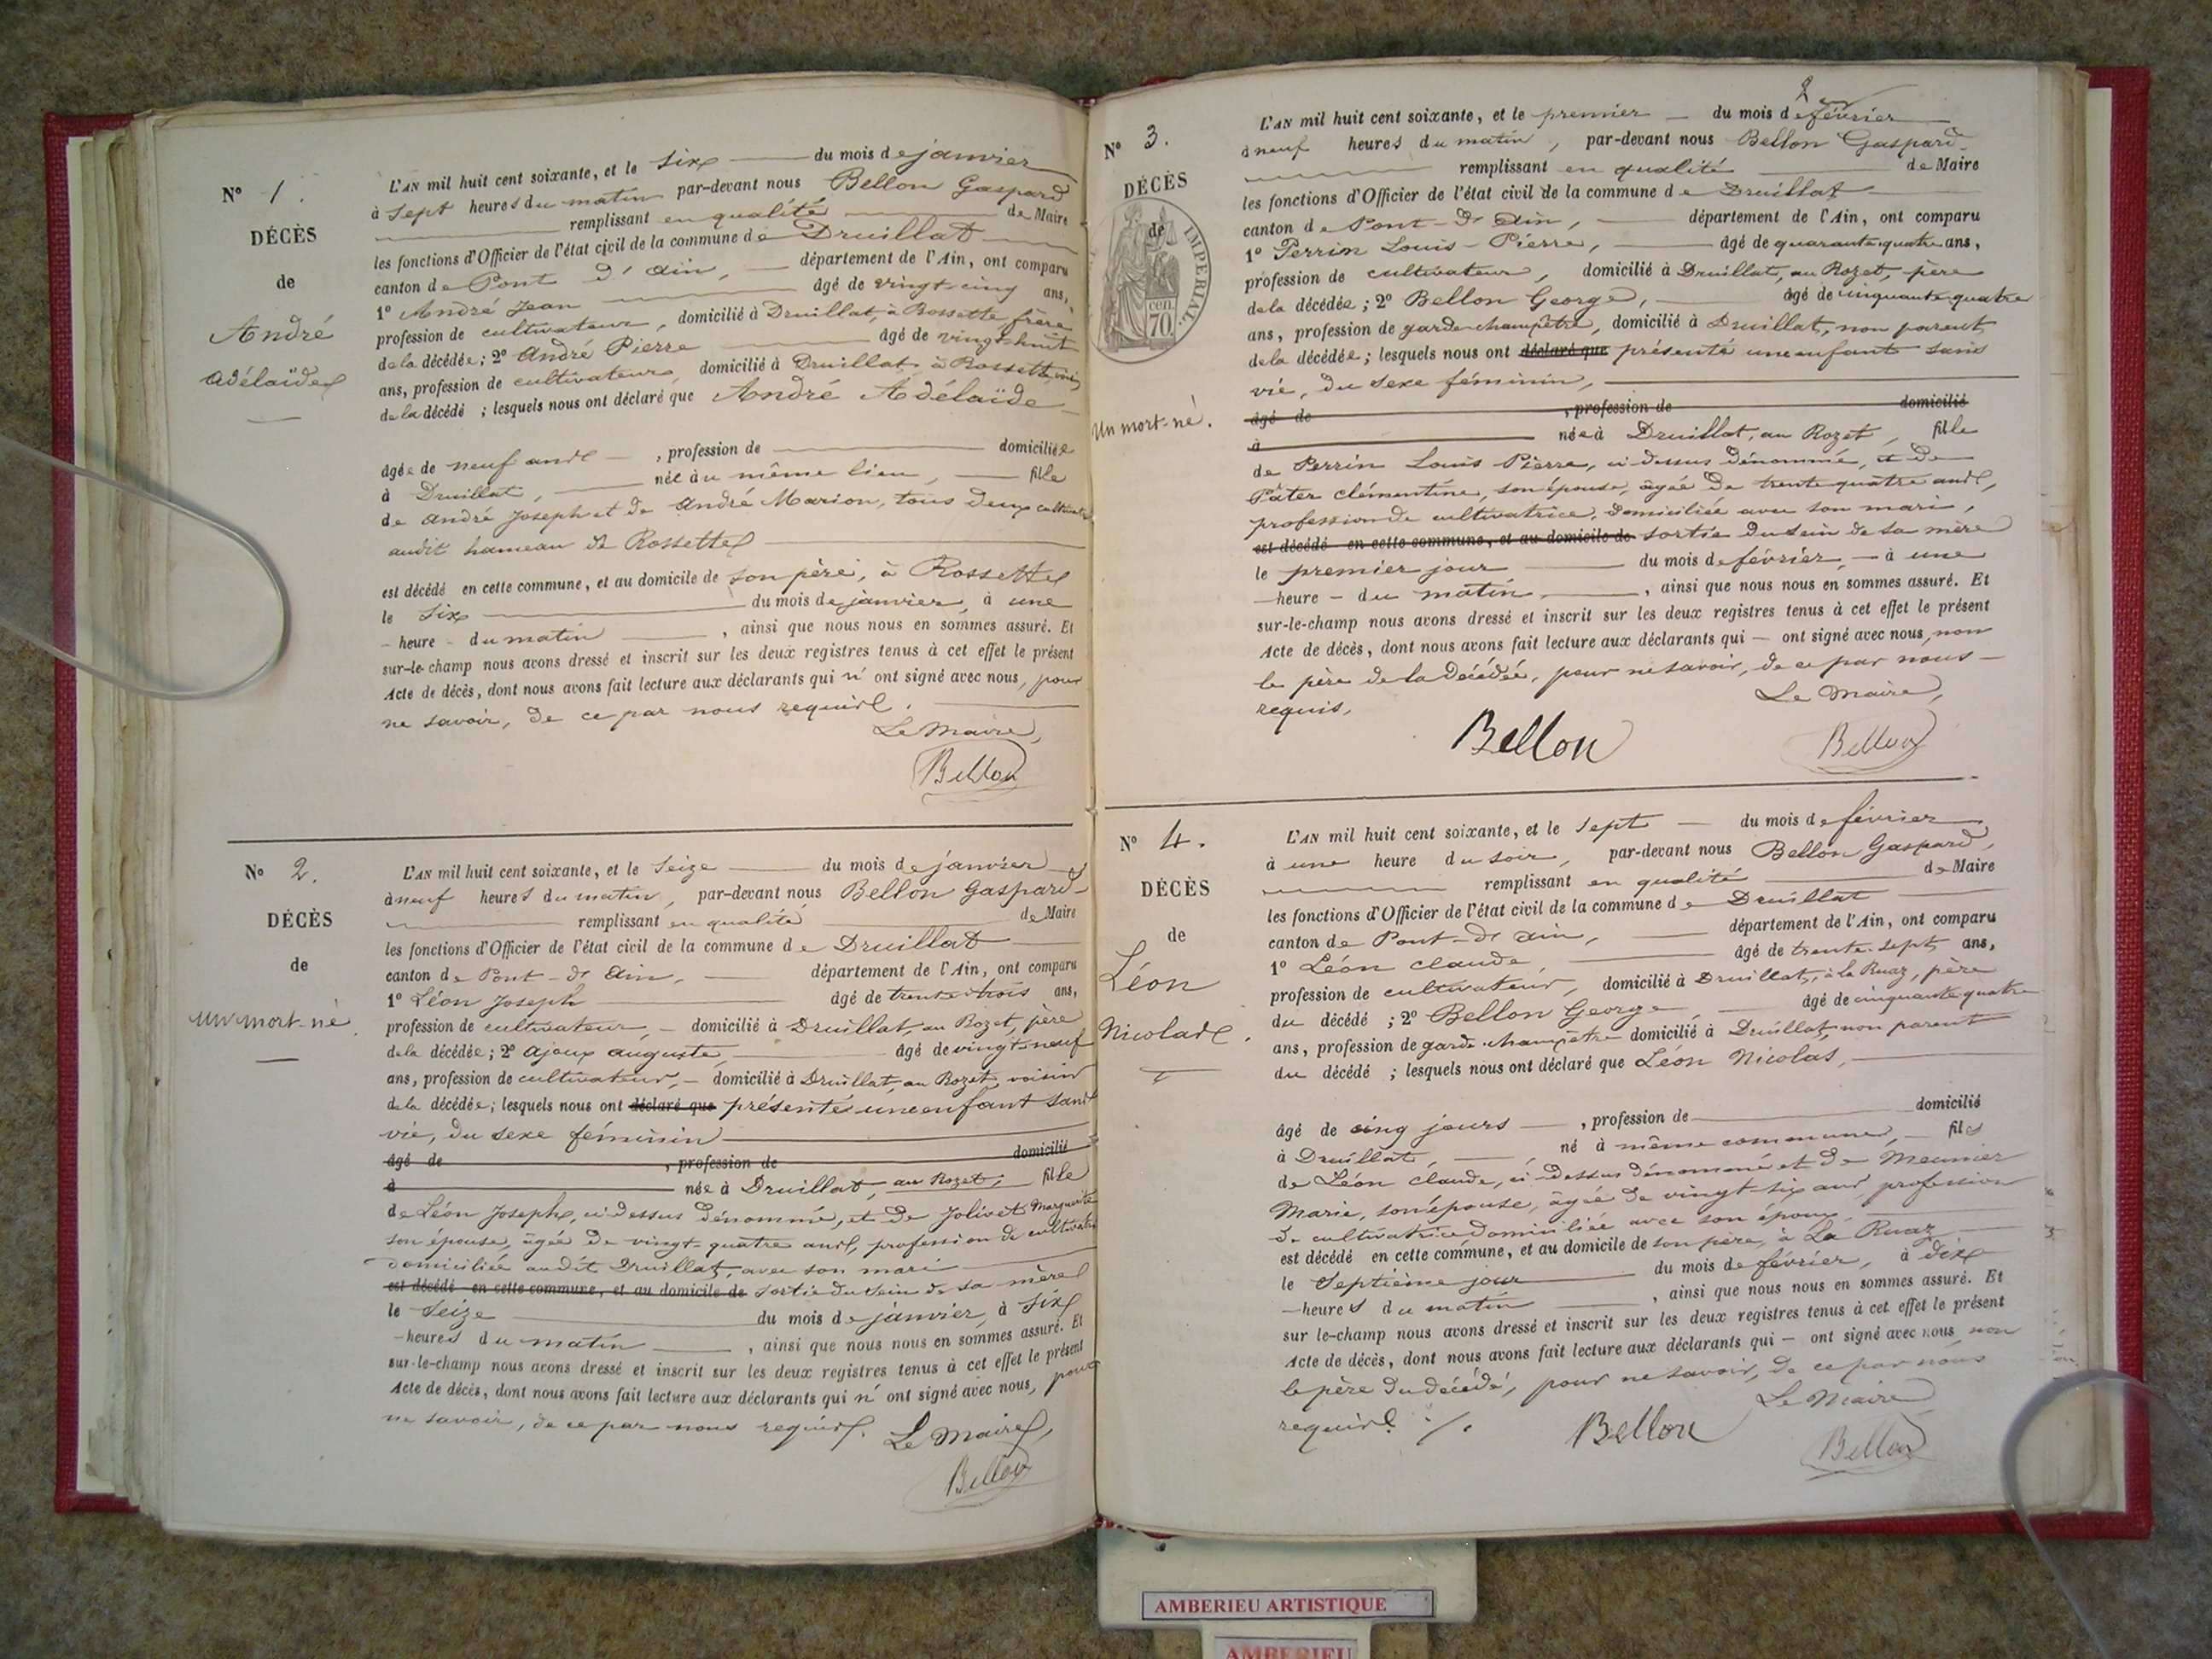 N° 1.
DÉCÈS
de
André
Adélaïde
L'AN mil huit cent soixante, et le six du mois de janvier
à sept heures du matin par-devant nous Bellon Gaspard
remplissant en qualité de Maire
les fonctions d'Officier de l'état civil de la commune de Druillat
canton de Pont d'ain, département de l'Ain, ont comparu
1° André Jean âgé de vingt-cinq ans,
profession de cultivateur, domicilié à Druillat, à Rossette frère
de la décédée; 2° André Pierre âgé de vingt-huit
ans, profession de cultivateur, domicilié à Druillat, à Rossette,
de la décédé ; lesquels nous ont déclaré que André Adélaïde
âgée de neuf ans , profession de domiciliée
à Druillat, née au même lieu, fille
de André Joseph et de André Marion, tous deux
audit hameau de Rossette
est décédé en cette commune, et au domicile de son père, à Rossette
le six du mois de janvier, à une
heure du matin , ainsi que nous nous en sommes assuré. Et
sur-le-champ nous avons dressé et inscrit sur les deux registres tenus à cet effet le présent
Acte de décès, dont nous avons fait lecture aux déclarants qui n'ont signé avec nous, pour
ne savoir, de ce par nous requis.
Le Maire,
Bellon
N° 2.
DÉCÈS
de
un mort-né.
L'AN mil huit cent soixante, et le seize du mois de janvier
à neuf heures du matin, par-devant nous Bellon Gaspard
remplissant en qualité de Maire
les fonctions d'Officier de l'état civil de la commune de Druillat
canton de Pont-d'ain, département de l'Ain, ont comparu
1° Léon Joseph âgé de trente trois ans,
profession de cultivateur, domicilié à Druillat, au Rozet, père
de la décédée; 2° Ajoux auguste, âgé de vingt-neuf
ans, profession de cultivateur, domicilié à Druillat, au Rozet, voisin
de la décédée; lesquels nous ont déclaré que présenté une enfant sans
vie, du sexe féminin
âgé de , profession de domicilié
à née à Druillat, au Rozet, fille
de Léon Joseph, ci-dessus dénommé, et de Jolivet Marguerite
son épouse, âgée de vingt-quatre ans, profession de
domiciliée audit Druillat, avec son mari
est décédé en cette commune, et au domicile de sortie du sein de sa mère
le seize du mois de janvier, à six
heures du matin , ainsi que nous nous en sommes assuré. Et
sur-le-champ nous avons dressé et inscrit sur les deux registres tenus à cet effet le présent
Acte de décès, dont nous avons fait lecture aux déclarants qui n'ont signé avec nous, pour
ne savoir, de ce par nous requis. Le Maire,
Bellon
2
N° 3.
DÉCÈS
de
IMPÉRIAL.
70 cen
Un mort-né.
L'AN mil huit cent soixante, et le premier du mois de février
à neuf heures du matin, par-devant nous Bellon Gaspard
remplissant en qualité de Maire
les fonctions d'Officier de l'état civil de la commune de Druillat
canton de Pont-d'ain, département de l'Ain, ont comparu
1° Perrin Louis-Pierre, âgé de quarante quatre ans,
profession de cultivateur, domicilié à Druillat, au Rozet, père
de la décédée; 2° Bellon George, âgé de cinquante quatre
ans, profession de garde-champêtre, domicilié à Druillat, non parent
de la décédée; lesquels nous ont déclaré que présenté une enfant sans
vie, du sexe féminin,
âgé de , profession de domicilié
à née à Druillat, au Rozet, fille
de Perrin Louis Pierre, ci-dessus dénommé, et de
Pater Clémentine, son épouse, âgée de trente quatre ans,
profession de cultivatrice, domiciliée avec son mari,
est décédé en cette commune, et au domicile de sortie du sein de sa mère
le premier jour du mois de février, à une
heure du matin, , ainsi que nous nous en sommes assuré. Et
sur-le-champ nous avons dressé et inscrit sur les deux registres tenus à cet effet le présent
Acte de décès, dont nous avons fait lecture aux déclarants qui ont signé avec nous, non
le père de la décédée, pour ne savoir, de ce par nous
requis,
Le Maire,
Bellon Bellon
N° 4.
DÉCÈS
de
Léon
Nicolas.
L'AN mil huit cent soixante, et le sept du mois de février
à une heure du soir, par-devant nous Bellon Gaspard,
remplissant en qualité de Maire
les fonctions d'Officier de l'état civil de la commune de Druillat
canton de Pont-d'ain, département de l'Ain, ont comparu
1° Léon Claude âgé de trente-sept ans,
profession de cultivateur, domicilié à Druillat, à la Ruaz, père
du décédé ; 2° Bellon George âgé de cinquante quatre
ans, profession de garde-champêtre domicilié à Druillat, non parent
du décédé ; lesquels nous ont déclaré que Léon Nicolas,
âgé de cinq jours , profession de domicilié
à Druillat, né à même commune, fils
de Léon Claude, ci-dessus dénommé et de Meunier
Marie, son épouse, âgée de vingt-six ans, profession
de cultivatrice domiciliée avec son époux
est décédé en cette commune, et au domicile de son père, à La Ruaz
le septième jour du mois de février, à dix
heures du matin , ainsi que nous nous en sommes assuré. Et
sur le-champ nous avons dressé et inscrit sur les deux registres tenus à cet effet le présent
Acte de décès, dont nous avons fait lecture aux déclarants qui ont signé avec nous non
le père du décédé, pour ne savoir, de ce par nous
requis.
Le Maire
Bellon Bellon
AMBERIEU ARTISTIQUE
AMBERIEU